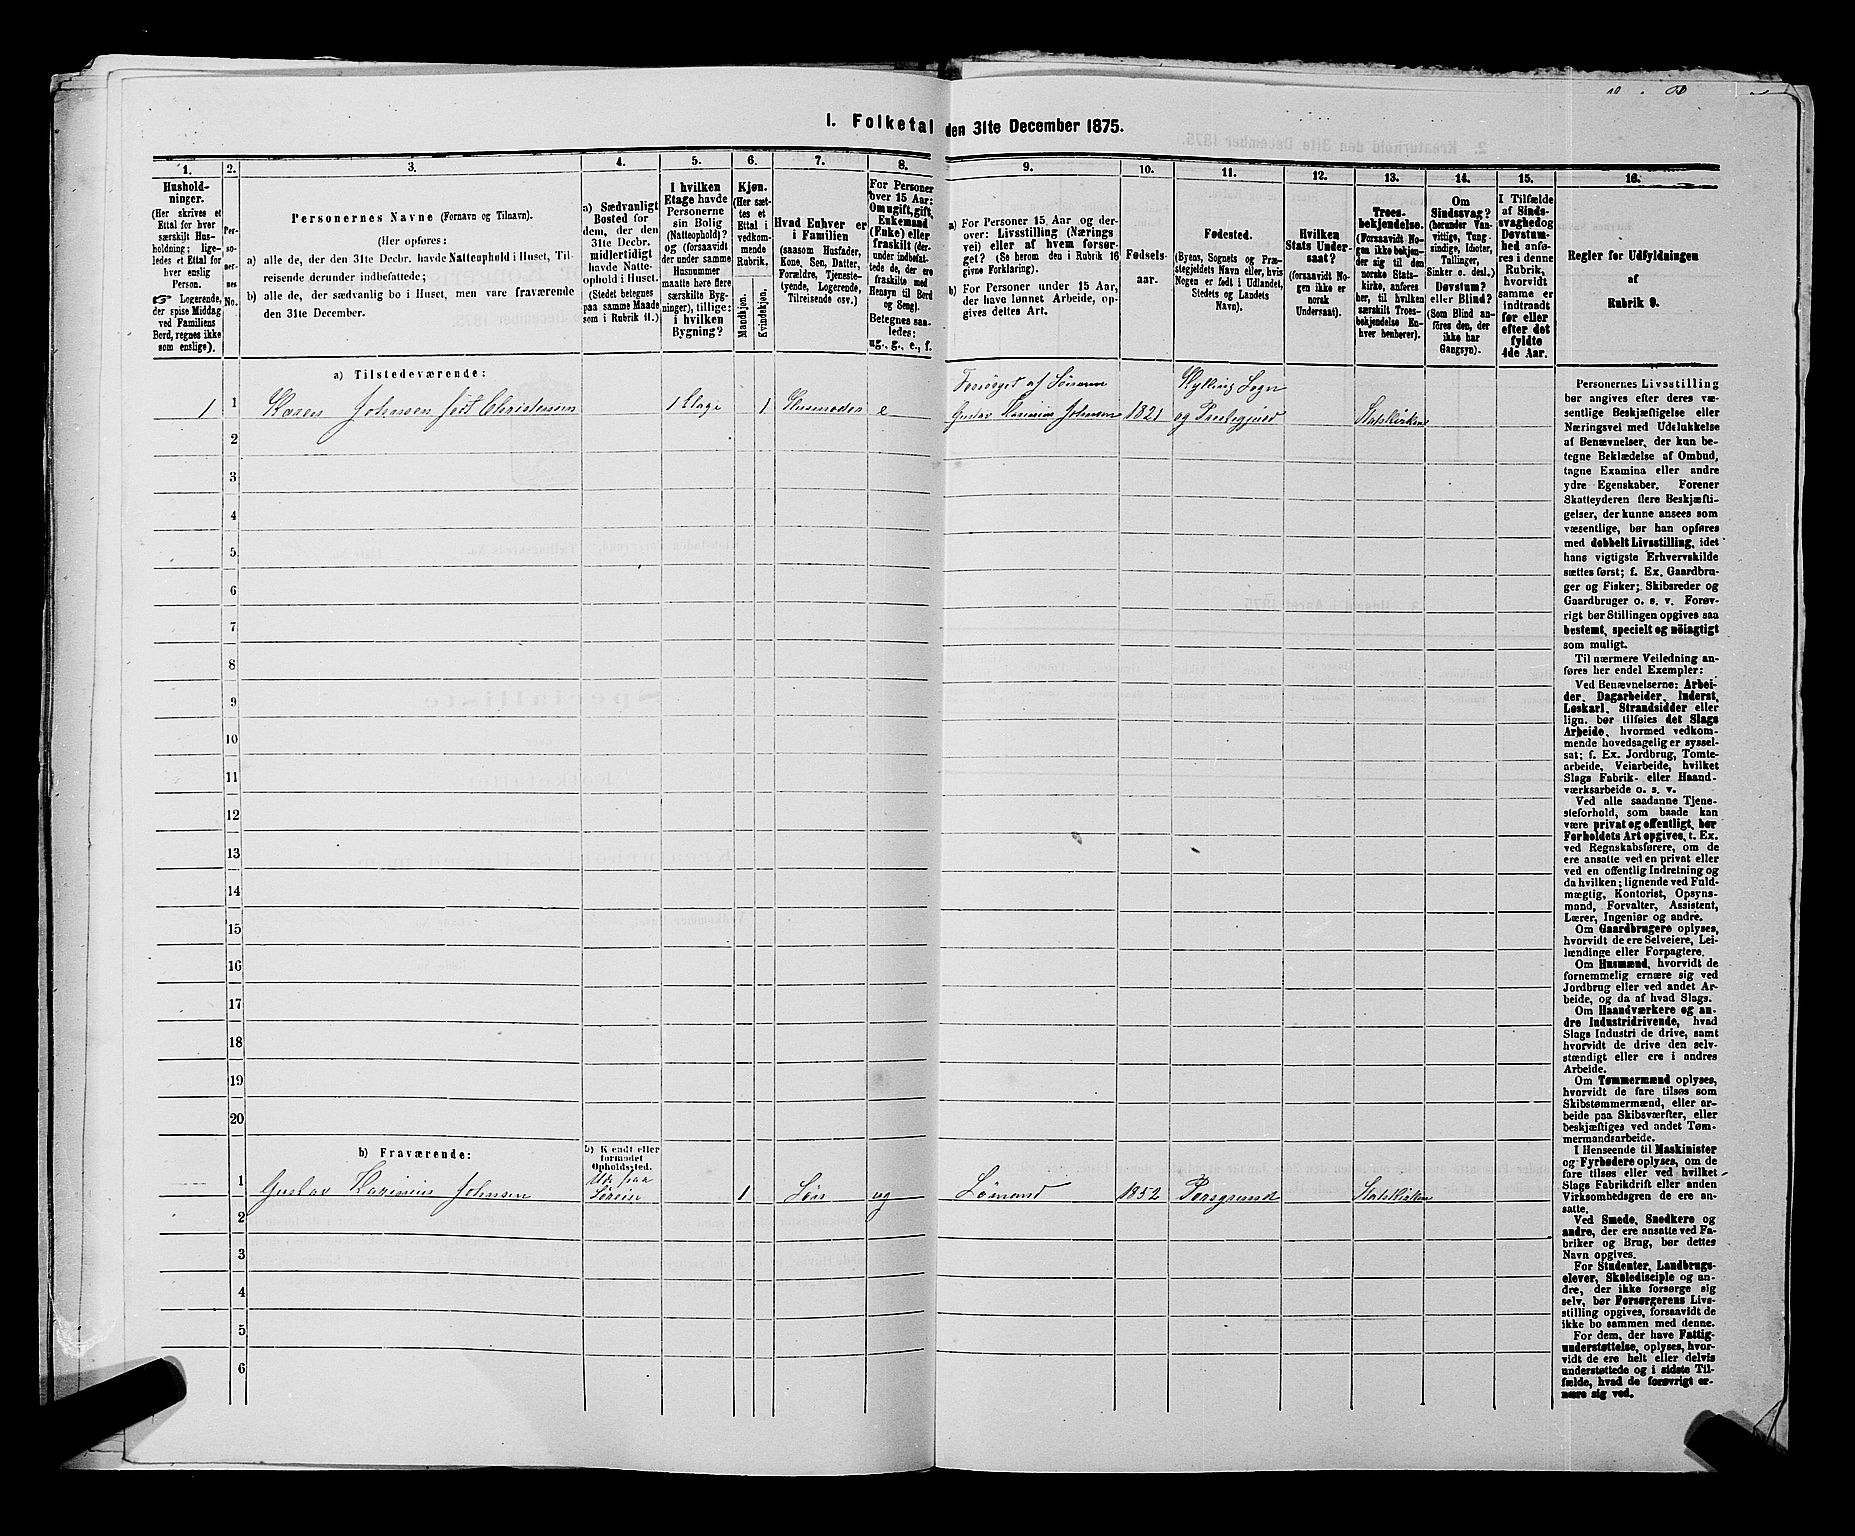 1. Folketal den 31te December 1875.
1.
Hushold-
ninger.
(Her skrives et
Ettal for hver
særskilt Hus-
holdning; lige-
ledes et Ettal for
hver enslig
Person.
☞ Logerende,
der spise Middag
ved Familiens
Bord, regnes ikke
som enslige).
2.
Per-
so-
ner-
nes
No.
3.
Personernes Navne (Fornavn og Tilnavn).
(Her opføres:
a) alle de, der den 31te Decbr. havde Natteophold i Huset, Til-
reisende derunder indbefattede;
b) alle de, der sædvanlig bo i Huset, men vare fraværende
den 31te December.
4.
a) Sædvanligt
Bosted for
dem, der den
31te Decbr.
midlertidigt
havde Natte-
ophold i Huset.
(Stedet betegnes
paa samme Maade
som i Rubrik 11.)
5.
I hvilken
Etage havde
Personerne
sin Bolig
(Natteophold)?
og (forsaavidt
der under samme
Husnummer
maatte høre flere
særskilte Byg-
ninger), tillige:
i hvilken
Bygning?
6.
Kjøn.
(Her sæt-
tes et
Ettal i
vedkom-
mende
Rubrik.
Mandkjøn.
Kvindekjøn.
7.
Hvad Enhver er
i Familien
(saasom Husfader,
Kone, Søn, Datter,
Forældre, Tjeneste-
tyende, Logerende,
Tilreisende osv.)
8.
For Personer
over 15 Aar:
Om ugift, gift,
Enkemand
(Enke) eller
fraskilt (der-
under indbefat-
tede de, der ere
fraskilte med
Hensyn til Bord
og Seng).
Betegnes saa-
ledes:
ug., g., e., f.
9.
a) For Personer 15 Aar og der-
over: Livsstilling (Nærings
vei) eller af hvem forsør-
get? (Se herom den i Rubrik 16
givne Forklaring).
b) For Personer under 15 Aar,
der have lønnet Arbeide, op-
gives dettes Art.
10.
Fødsels-
aar.
11.
Fødested.
(Byens, Sognets og Præ-
stegjeldets Navn eller, hvis
Nogen er født i Udlandet,
Stedets og Landets
Navn).
12.
Hvilken
Stats Under-
saat?
(forsaavidt No-
gen ikke er
norsk
Undersaat).
13.
Troes-
bekjendelse.
(Forsaavidt No-
gen ikke bekjen-
der sig til den
norske Stats-
kirke, anføres
her, til hvilken
særskilt Troes-
bekjendelse En-
hver henhører).
14.
Om
Sindssvag?
(herunder Van-
vittige, Tung-
sindige, Idioter,
Tullinger,
Sinker o. desl.)
Døvstum?
eller Blind?
(Som Blind an-
føres den, der
ikke har
Gangsyn).
15.
I Tilfælde
af Sinds-
svaghed og
Døvstum-
hed anfø-
res i denne
Rubrik,
hvorvidt
samme er
indtraadt
før eller
efter det
fyldte
4de Aar.
16.
Regler for Udfyldningen
af
Rubrik 9.
a) Tilstedeværende:
1 1 Karen Johnsen født Christensen 1 Etage 1 Husmoder e Forsørget af Sømand Gustav Johnsen 1821 Sogn og Prestegjeld Statskirken
2
3
4
5
6
7
8
9
10
11
12
13
14
15
16
17
18
19
20
b) Fraværende:
b) Kjendt eller
formodet
Opholdssted.
1 Gustav Johnsen Ude paa Søreise 1 Søn ug Sømand 1852 Porsgrund Statskirken
2
3
4
5
6
Personernes Livsstilling
bør angives efter deres væ-
sentlige Beskjæftigelse eller
Næringsvei med Udelukkelse
af Benævnelser, der kun be-
tegne Beklædelse af Ombud,
tagne Examina eller andre
ydre Egenskaber. Forener
Skatteyderen flere Beskjæfti-
gelser, der kunne ansees som
væsentlige, bør han opføres
med dobbelt Livsstilling, idet
hans vigtigste Erhvervskilde
sættes først; f. Ex. Gaardbru-
ger og Fisker; Skibsreder og
Gaardbruger o. s. v. Forøv-
rigt bør Stillingen opgives saa
bestemt, specielt og nöiagtigt
som muligt.
Til nærmere Veiledning an-
føres her endel Exempler:
Ved Benævnelserne: Arbei-
der, Dagarbeider, Inderst,
Løskarl, Strandsidder eller
lign. bør tilføies det Slags
Arbeide, hvormed vedkom-
mende hovedsagelig er syssel-
sat; f. Ex. Jordbrug, Tomte-
arbeide, Veiarbeide, hvilket
Slags Fabrik- eller Haand-
værksarbeide o. s. v.
Ved alle saadanne Tjene-
steforhold, som baade kan
være privat og offentligt, bør
Forholdets Art opgives, t. Ex.
ved Regnskabsførere, om de
ere ansatte ved en privat eller
ved en offentlig Indretning og
da hvilken; lignende ved Fuld-
mægtig, Kontorist, Opsyns-
mand, Forvalter, Assistent,
Lærer, Ingeniør og andre.
Om Gaardbrugere oplyses,
hvorvidt de ere Selveiere, Lei-
lændinge eller Forpagtere.
Om Husmænd, hvorvidt de
fornemmelig ernære sig ved
Jordbrug eller ved andet Ar-
beide, og da af hvad Slags.
Om Haandværkere og an-
dre Industridrivende, hvad
Slags Industri de drive, samt
hvorvidt de drive den selv-
stændigt eller ere i andres
Arbeide.
Om Tømmermænd oplyses,
hvorvidt de fare tilsøs som
Skibstømmermænd, eller ar-
beide paa Skibsværfter, eller
beskjæftiges ved andet Tøm-
mermandsarbeide.
I Henseende til Maskinister
og Fyrbødere oplyses, om de
fare tilsøs eller ved hvilket
Slags Fabrikdrift eller anden
Virksomhedsgren de ere an-
satte.
Ved Smede, Snedkere og
andre, der ere ansatte ved Fa-
briker og Brug, bør dettes
Navn opgives.
For Studenter, Landbrugs-
elever, Skoledisciple og an-
dre, der ikke forsørge sig
selv, bør Forsørgerens Livs-
stilling opgives, forsaavidt de
ikke bo sammen med denne.
For dem, der have Fattig-
understøttelse, oplyses, hvor-
vidt de ere helt eller delvis
understøttede og i sidste Til-
fælde, hvad de forøvrigt er-
nære sig ved.